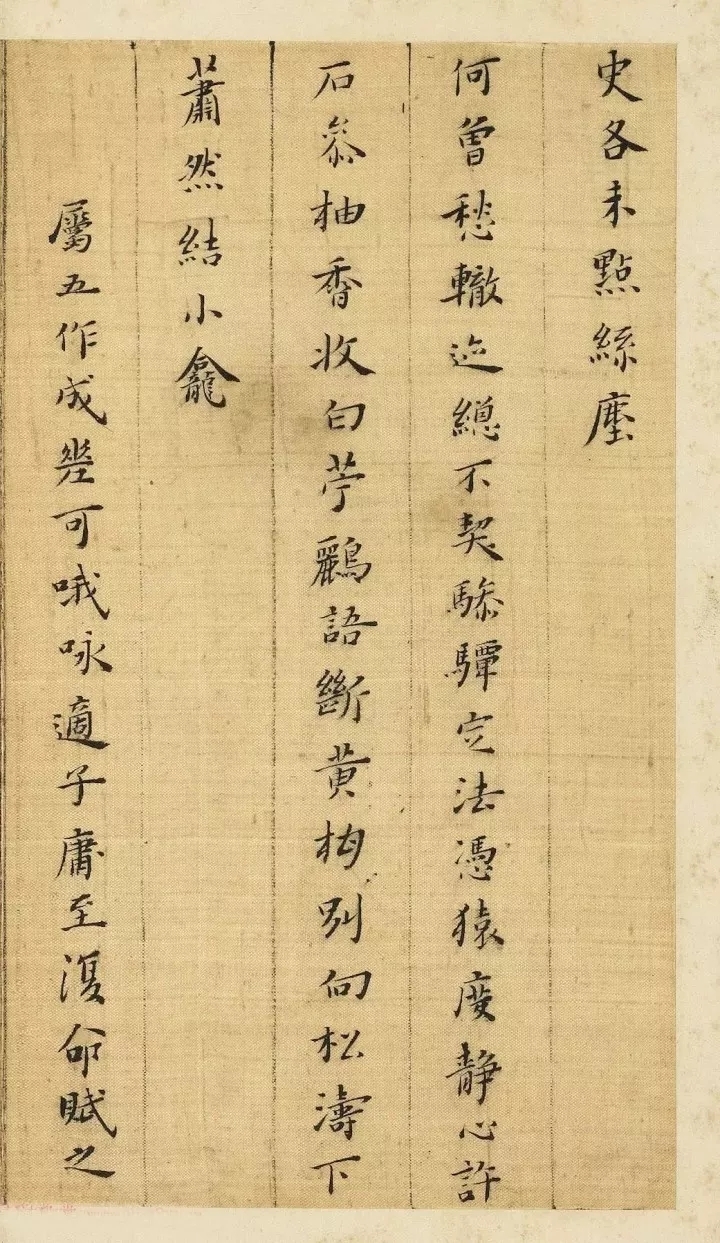 史各未點絲塵
何曾愁轍迹總不契驂驔定法憑猿度靜心許
石參柚香收白苧鸝語斷黃梅別向松濤下
蕭然結小龕
屬五作成壁可哦咏適子庸至復命賦之